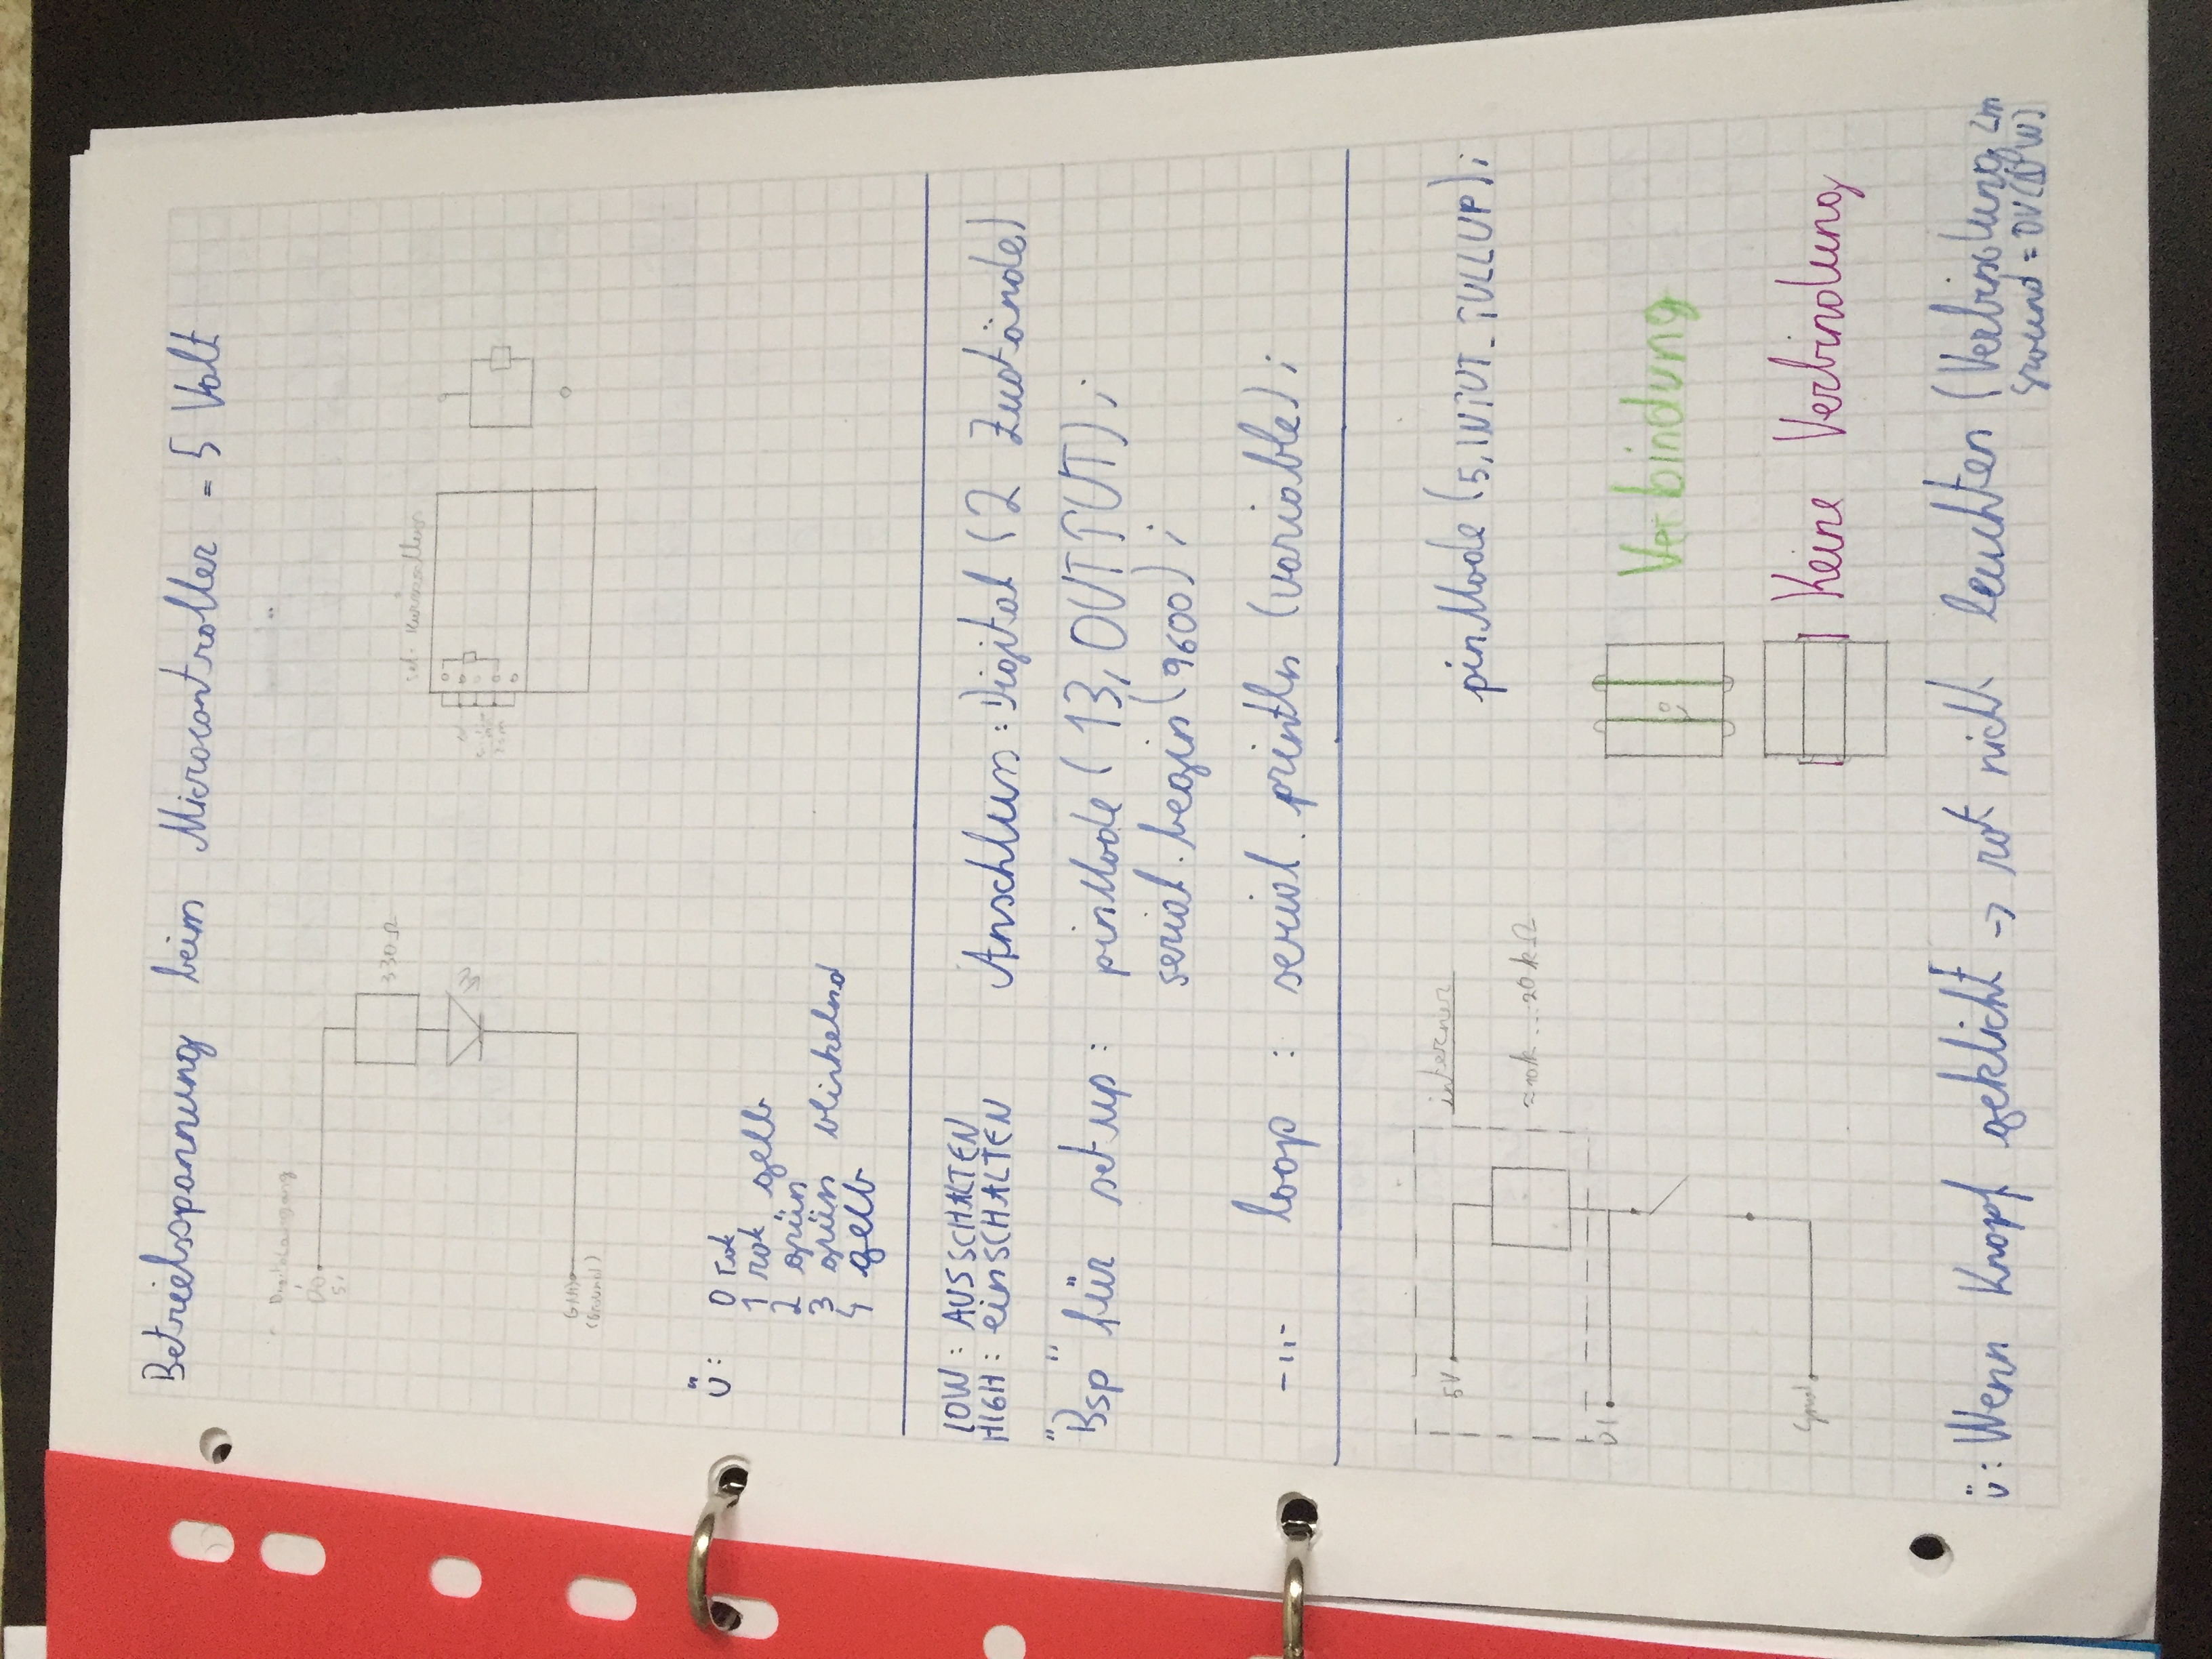 Betriebsspannung beim Microcontroller = 5 Volt
Digitalausgang
330Ω
GND
(Ground)
Ü: 0 rot
1 rot gelb
2 grün
3 grün blinkelnd
4 gelb
LOW: AUSSCHALTEN
HIGH: einSCHALTEN
Anschluss: Digital (2 Zustände)
"Bsp" für setup: pinMode (13, OUTPUT);
serial.begin(9600);
-"- loop: serial.println (variable);
5V
interner
≈10k...20kΩ
pinMode (5, INPUT_PULLUP);
D1
Verbindung
Gnd
Keine Verbindung
ü: Wenn Knopf geklicht -> rot nicht leuchten (Verbindung zm
Ground = 0V (LOW)